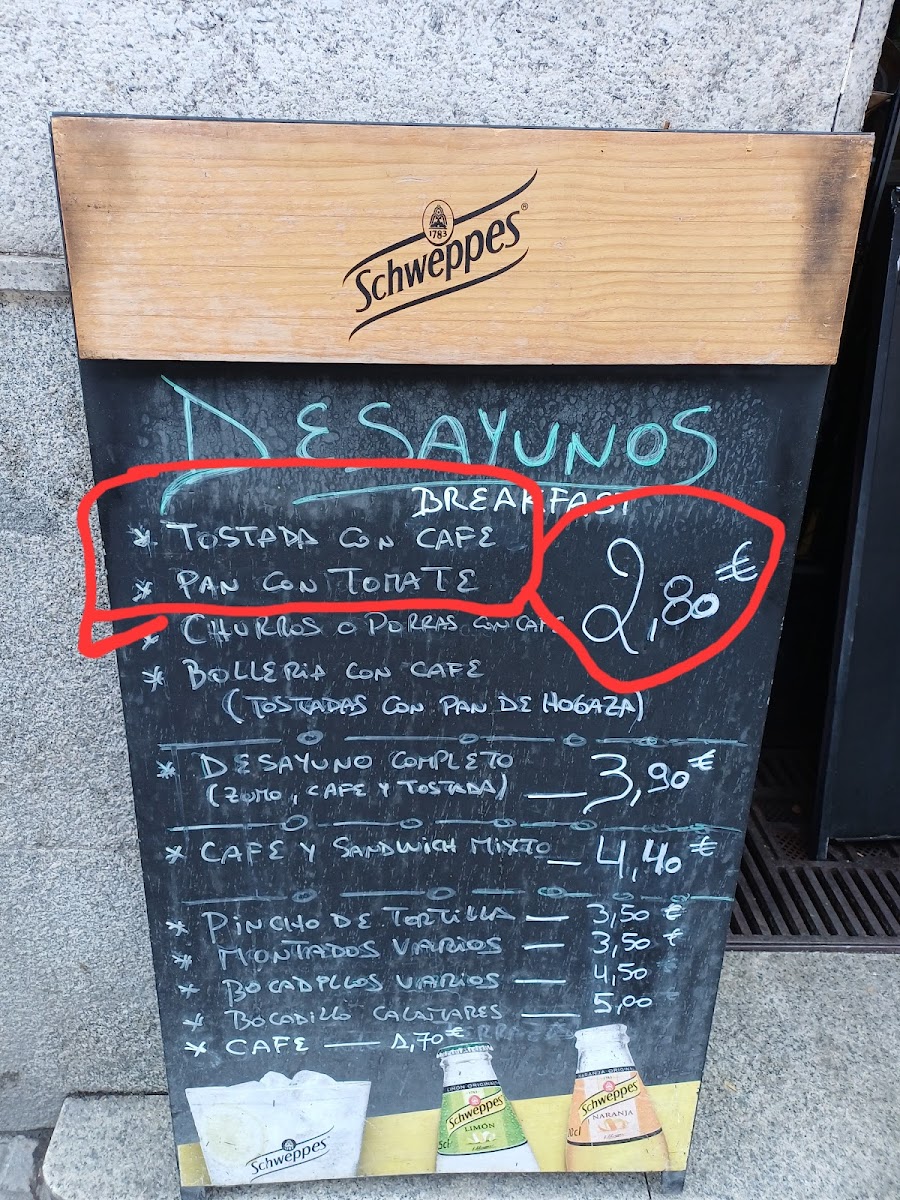 1783
Schweppes®
DESAYUNOS
BREAKFAST
* TOSTADA CON CAFE
* PAN CON TOMATE
2,80€
* CHURROS O PORRAS CON CAFE
* BOLLERIA CON CAFE
(TOSTADAS CON PAN DE HOGAZA)
* DESAYUNO COMPLETO
(ZUMO, CAFE Y TOSTADA) — 3,90€
* CAFE Y SANDWICH MIXTO — 4,40€
* PINCHO DE TORTILLA — 3,50€
* MONTADOS VARIOS — 3,50€
* BOCADILLOS VARIOS — 4,50€
* BOCADILLO CALAMARES — 5,00€
* CAFE — 1,70€
Schweppes
LIMÓN ORIGINAL
Schweppes
LIMÓN
NARANJA ORIGINAL
Schweppes
NARANJA